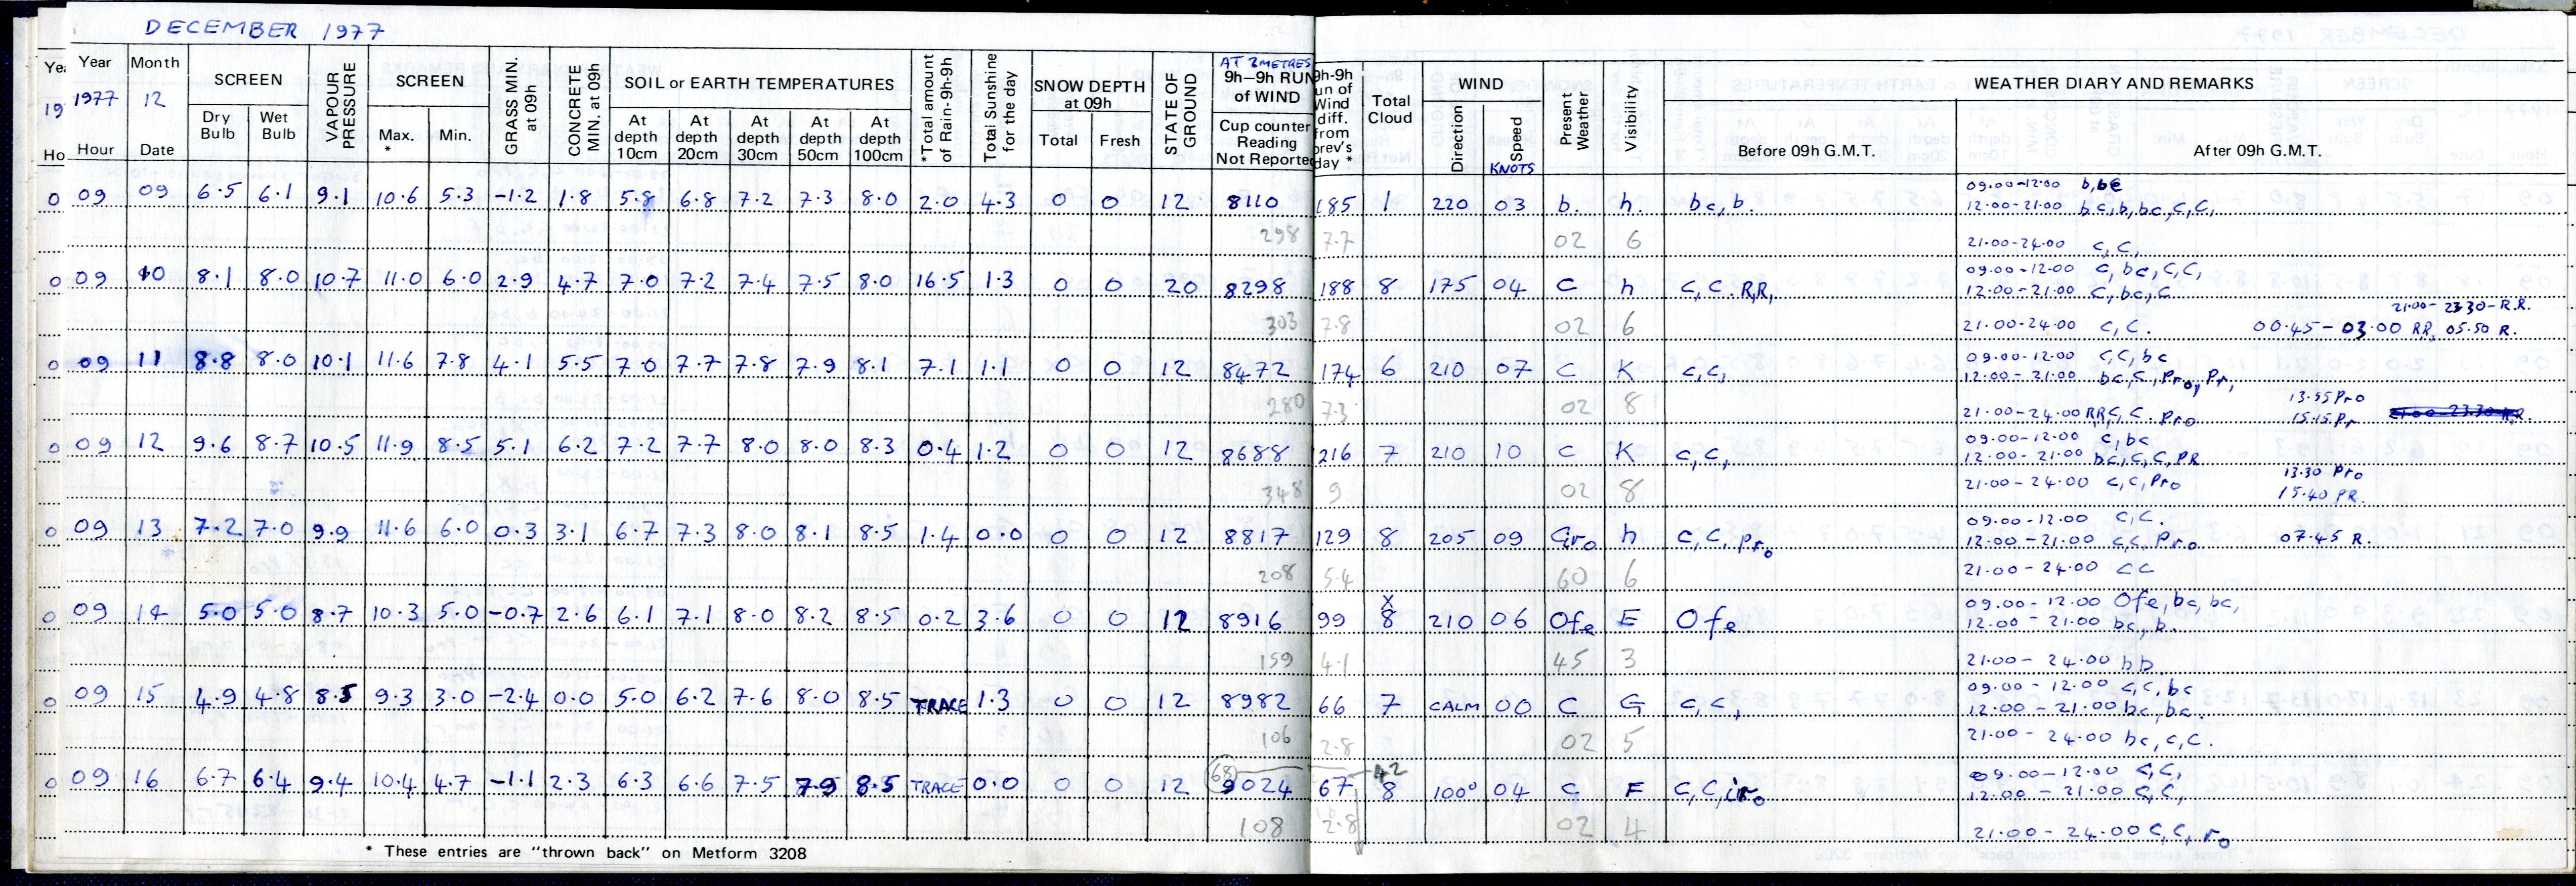 DECEMBER 1977
Year Month SCREEN VAPOUR PRESSURE SCREEN GRASS MIN. at 09h CONCRETE MIN. at 09h SOIL or EARTH TEMPERATURES *Total amount of Rain-9h-9h Total Sunshine for the day SNOW DEPTH at 09h STATE OF GROUND AT 2 METRES 9h-9h RUN of WIND 9h-9h un of Wind diff. from prev's day * Total Cloud WIND Present Weather Visibility WEATHER DIARY AND REMARKS
1977 12
Hour Date Dry Bulb Wet Bulb Max. * Min. At depth 10cm At depth 20cm At depth 30cm At depth 50cm At depth 100cm Total Fresh Cup counter Reading Not Reported Direction Speed KNOTS Before 09h G.M.T. After 09h G.M.T.
09.00-12.00 b,bc
09 09 6.5 6.1 9.1 10.6 5.3 -1.2 1.8 5.8 6.8 7.2 7.3 8.0 2.0 4.3 0 0 12 8110 185 1 220 03 b. h. bc,b. 12.00-21.00 bc,b,bc,c,c,
298 7.7 02 6 21.00-24.00 c,c,
09.00-12.00 c,bc,c,c,
09 10 8.1 8.0 10.7 11.0 6.0 2.9 4.7 7.0 7.2 7.4 7.5 8.0 16.5 1.3 0 0 20 8298 188 8 175 04 C h c,c.R,R, 12.00-21.00 c,bc,c
21.00-23.30-R.R.
303 7.8 02 6 21.00-24.00 c,c. 00.45-03.00 RR, 05.50 R.
09.00-12.00 c,c,bc
09 11 8.8 8.0 10.1 11.6 7.8 4.1 5.5 7.0 7.7 7.8 7.9 8.1 7.1 1.1 0 0 12 8472 174 6 210 07 C K c,c, 12.00-21.00 bc,c,Pro,Pr,
13.55 Pro
280 7.3 02 8 21.00-24.00 RR,c,c.Pro 15.15 Pr
09.00-12.00 c,bc
09 12 9.6 8.7 10.5 11.9 8.5 5.1 6.2 7.2 7.7 8.0 8.0 8.3 0.4 1.2 0 0 12 8688 216 7 210 10 C K c,c, 12.00-21.00 bc,c,c,PR
13.30 Pro
348 9 02 8 21.00-24.00 c,c,Pro 15.40 PR.
09.00-12.00 c,c.
09 13 7.2 7.0 9.9 11.6 6.0 0.3 3.1 6.7 7.3 8.0 8.1 8.5 1.4 0.0 0 0 12 8817 129 8 205 09 Ciro h c,c,Pro 12.00-21.00 c,c,Pro 07.45 R.
208 5.4 60 6 21.00-24.00 cc
09.00-12.00 Ofe,bc,bc,
09 14 5.0 5.0 8.7 10.3 5.0 -0.7 2.6 6.1 7.1 8.0 8.2 8.5 0.2 3.6 0 0 12 8916 99 x 8 210 06 Ofe E Ofe 12.00-21.00 bc,b.
159 4.1 45 3 21.00-24.00 bb
09.00-12.00 c,c,bc
09 15 4.9 4.8 8.5 9.3 3.0 -2.4 0.0 5.0 6.2 7.6 8.0 8.5 TRACE 1.3 0 0 12 8982 66 7 CALM 00 C G c,c, 12.00-21.00 bc,bc.
106 2.8 02 5 21.00-24.00 bc,c,c.
68 42 09.00-12.00 c,c,
09 16 6.7 6.4 9.4 10.4 4.7 -1.1 2.3 6.3 6.6 7.5 7.9 8.5 TRACE 0.0 0 0 12 9024 67 8 100° 04 C F c,c,iro 12.00-21.00 c,c,
108 2.8 02 4 21.00-24.00 c,c,ro
* These entries are "thrown back" on Metform 3208